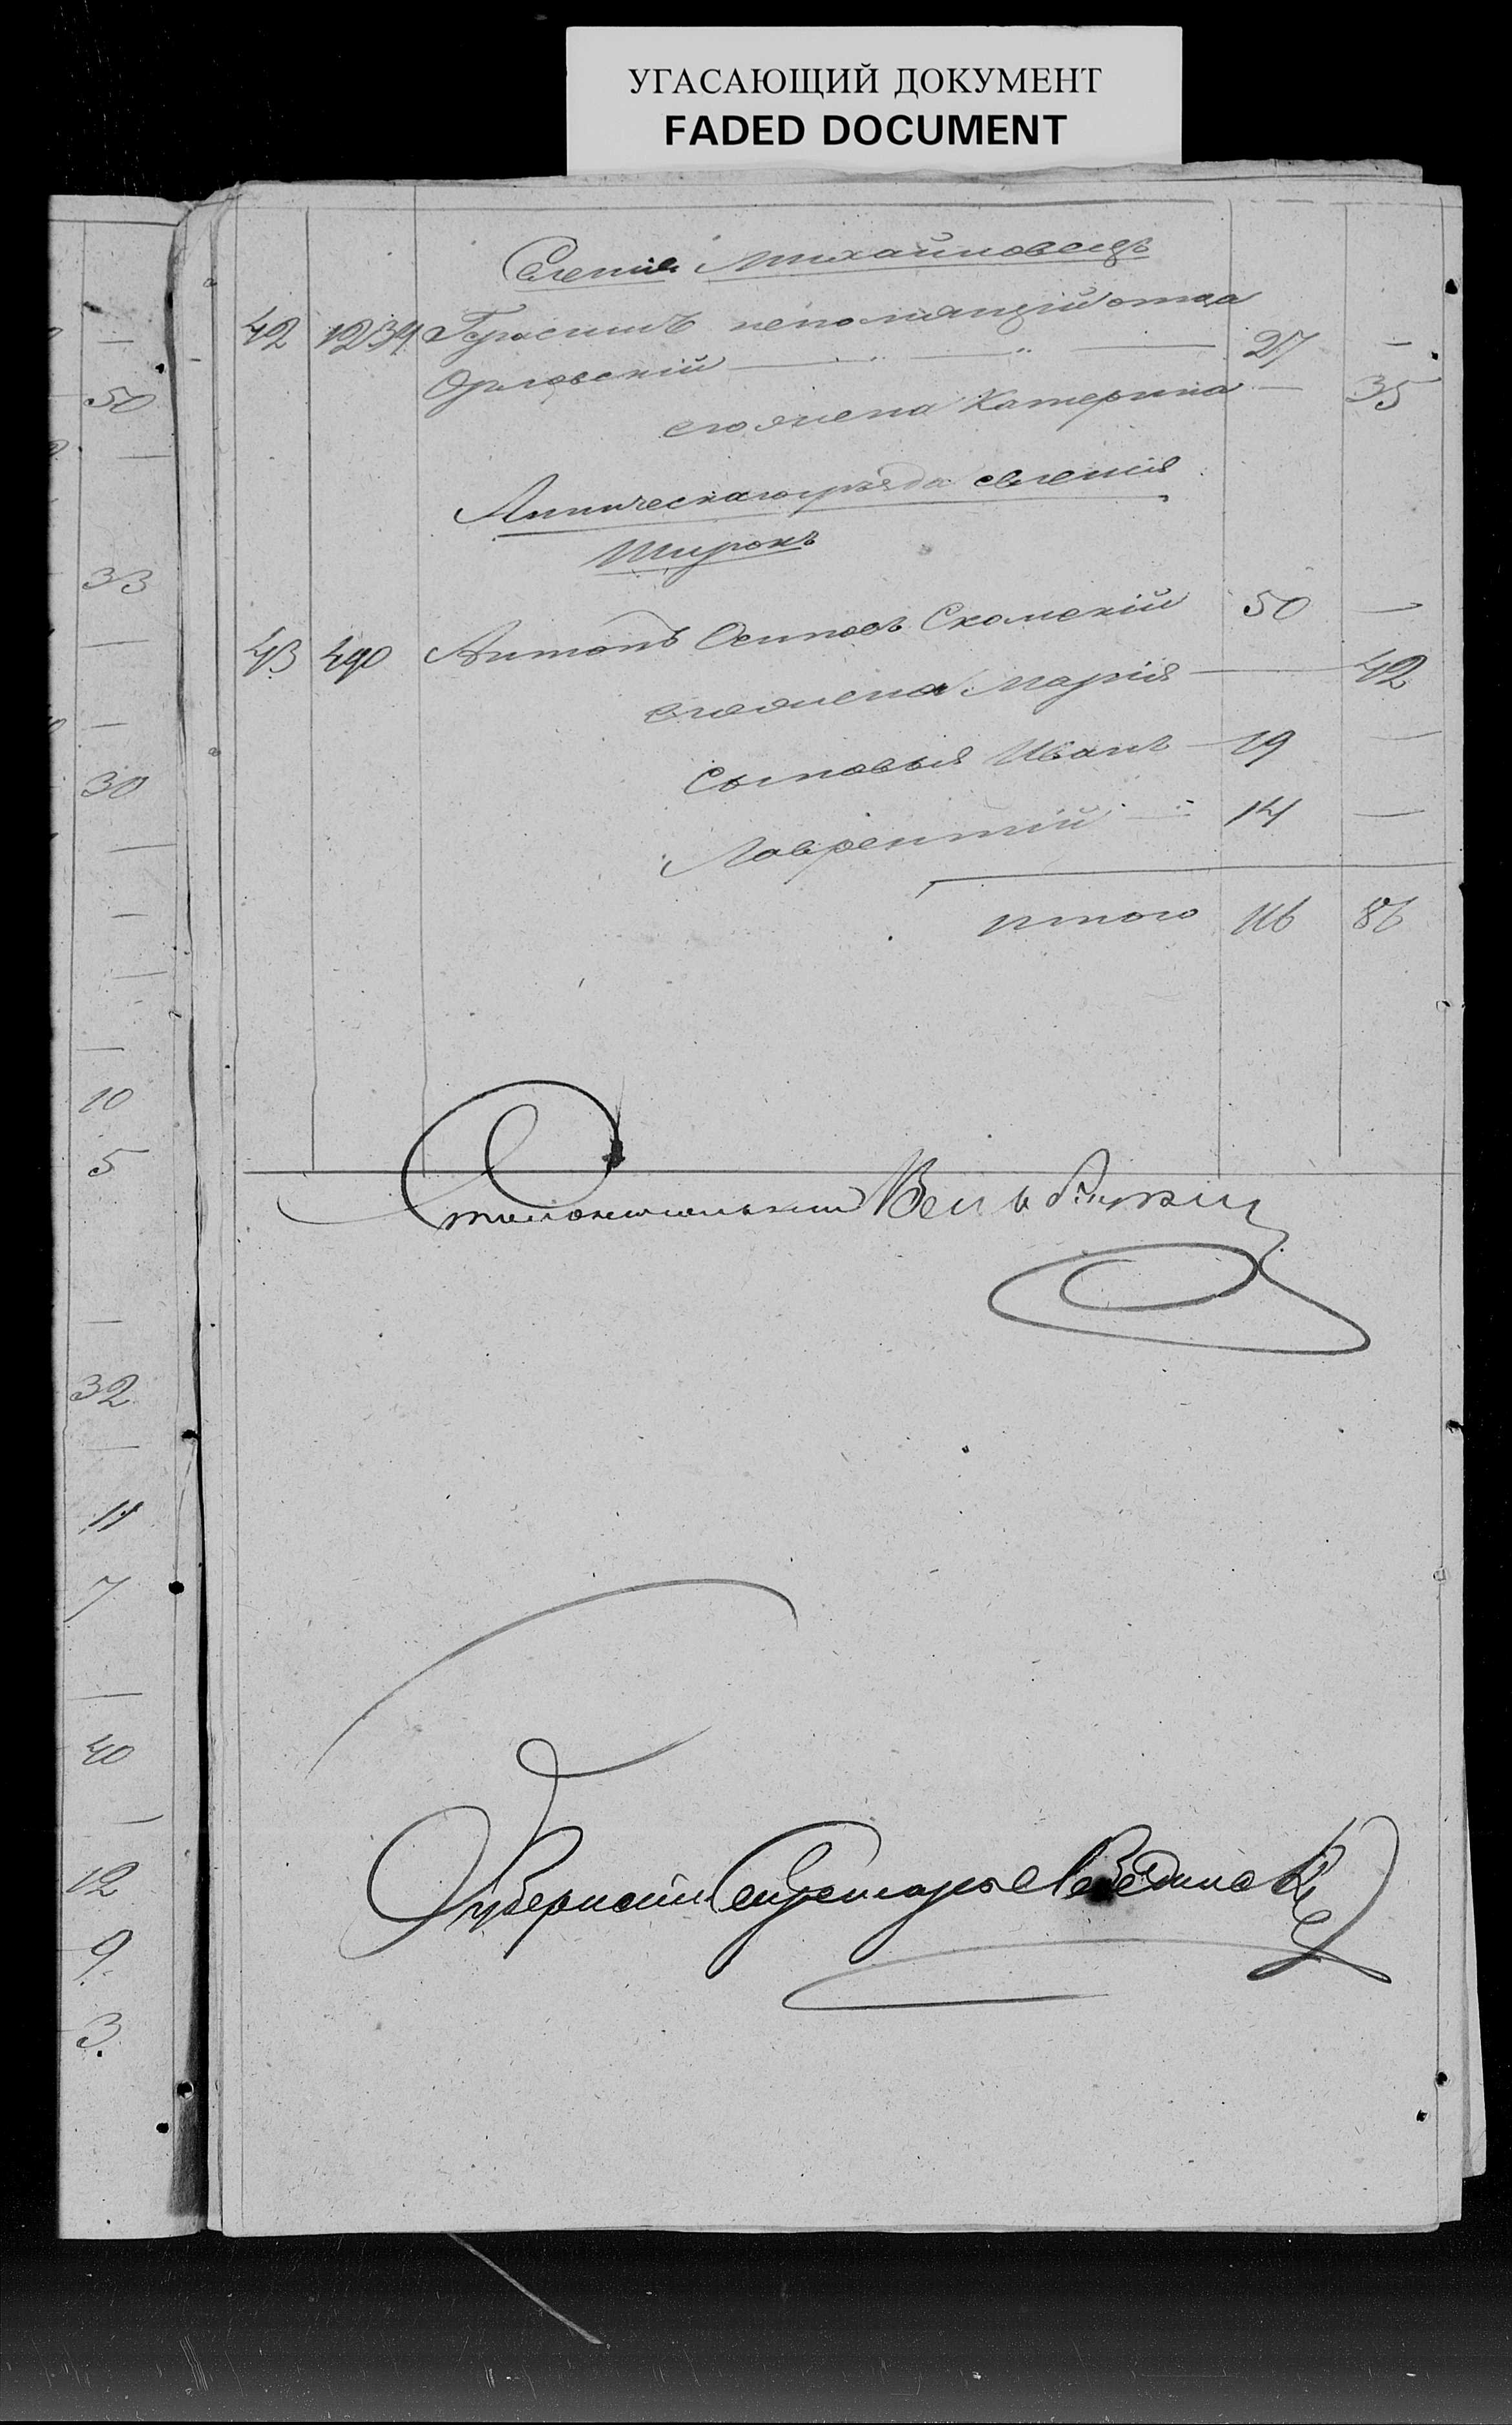 УГАСАЮЩИЙ ДОКУМЕНТ
FADED DOCUMENT
Селенiе Михайловецъ
42 1234 Герасимъ непомнящiй отца
Орловскiй 27 —
его жена Катерина — 35
уѣзда селенiя
Широкъ
43 490 Антонъ Осиповъ Скомскiй 50 —
его жена Марiя — 42
Сыновья Иванъ — 19 —
Лаврентiй 14 —
итого 116 86
Столоначальникъ
Губернскiй Секретарь Лебединскiй
50
33
30
10
5
32
11
7
40
12
9.
3.